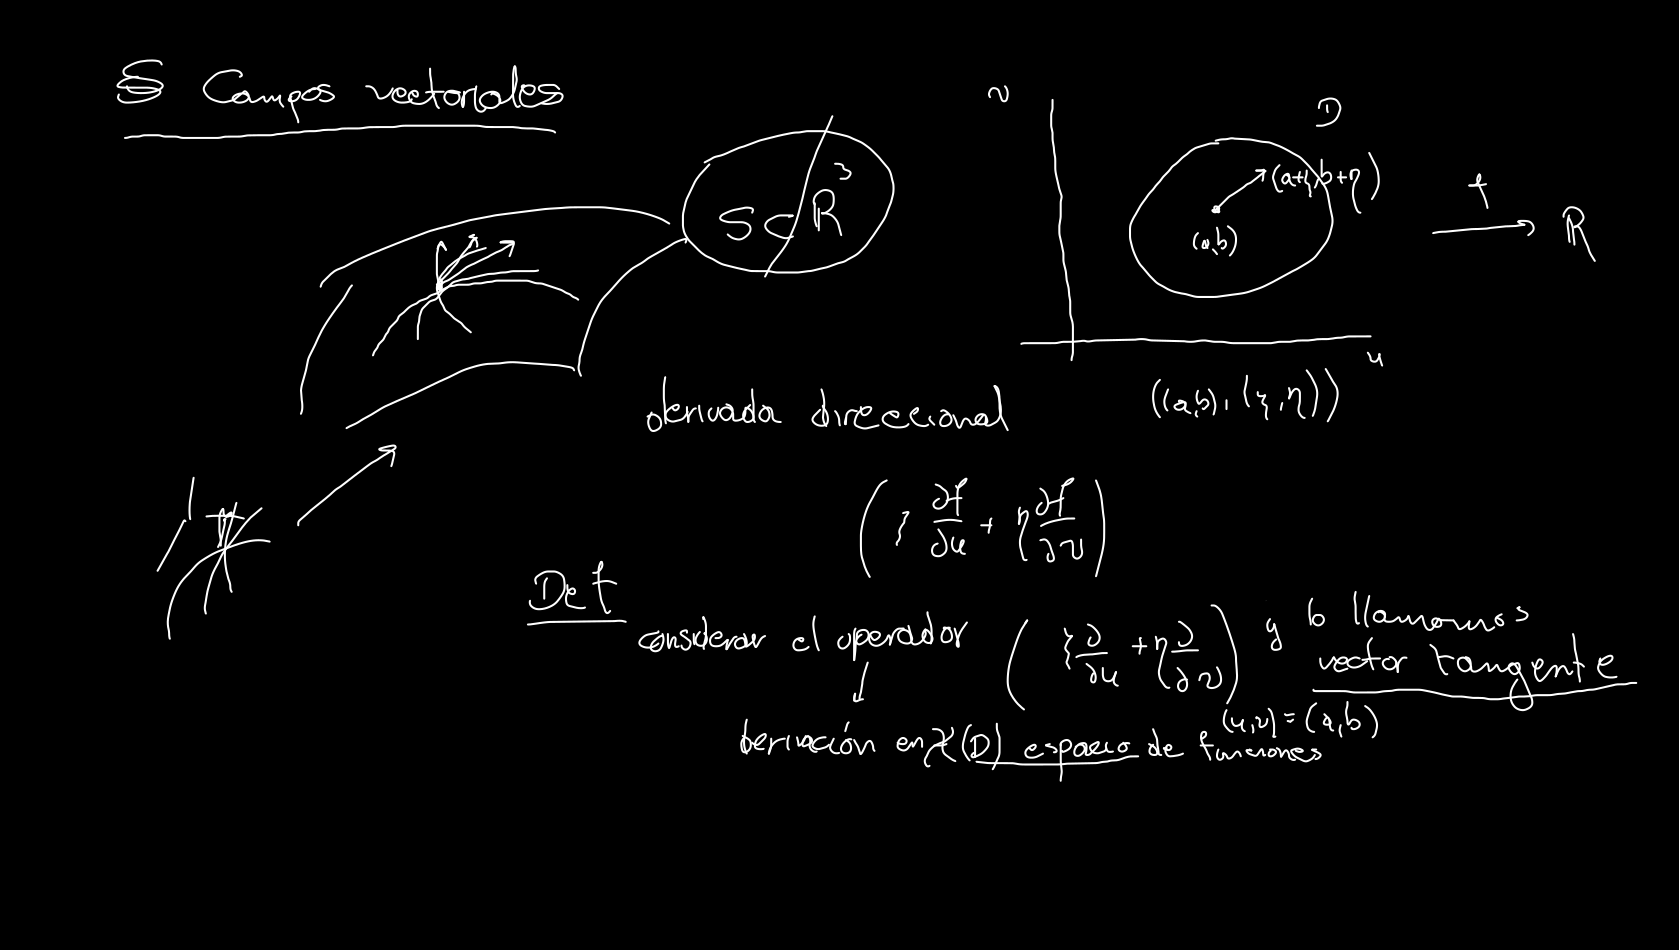 § Campos vectoriales
S⊂R³
v
D
(a+ξ,b+η)
(a,b)
f
R
u
((a,b),(ξ,η))
derivada direccional
(ξ ∂f/∂u + η ∂f/∂v)
Def
considerar el operador (ξ ∂/∂u + η ∂/∂v) y lo llamamos
vector tangente
(u,v)=(a,b)
derivación en X(D) espacio de funciones